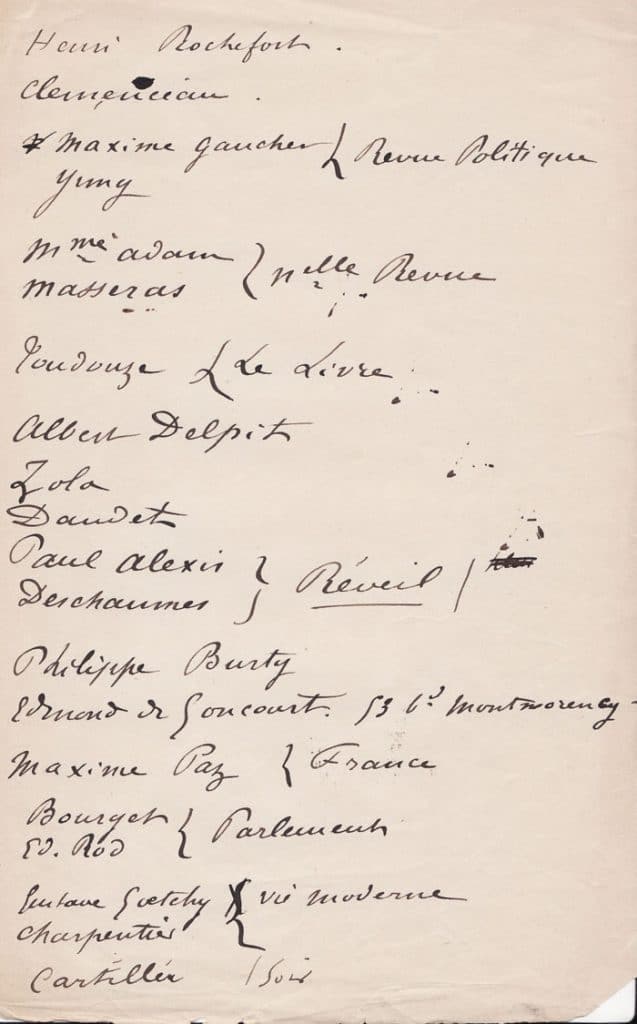 Henri Rochefort.
Clemenceau.
x Maxime Gaucher } Revue Politique
Yung
Mme Adam } Nelle Revue
Masseras
Toudouze { Le Livre
Albert Delpit
Zola
Daudet
Paul Alexis } Réveil /
Deschaumes
Philippe Burty
Edmond de Goncourt. 53 bd Montmorency-
Maxime Paz { France
Bourget { Parlement
Ed. Rod
Gustave Goetschy { vie moderne
Charpentier
/ Soir